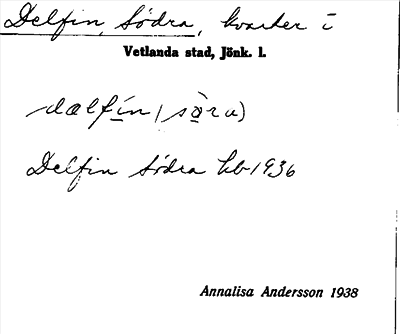 Delfin, Södra, kvarter i
Vetlanda stad, Jönk. l.
dælfín (sö̀ra)
Delfin Södra hb 1936
Annalisa Andersson 1938